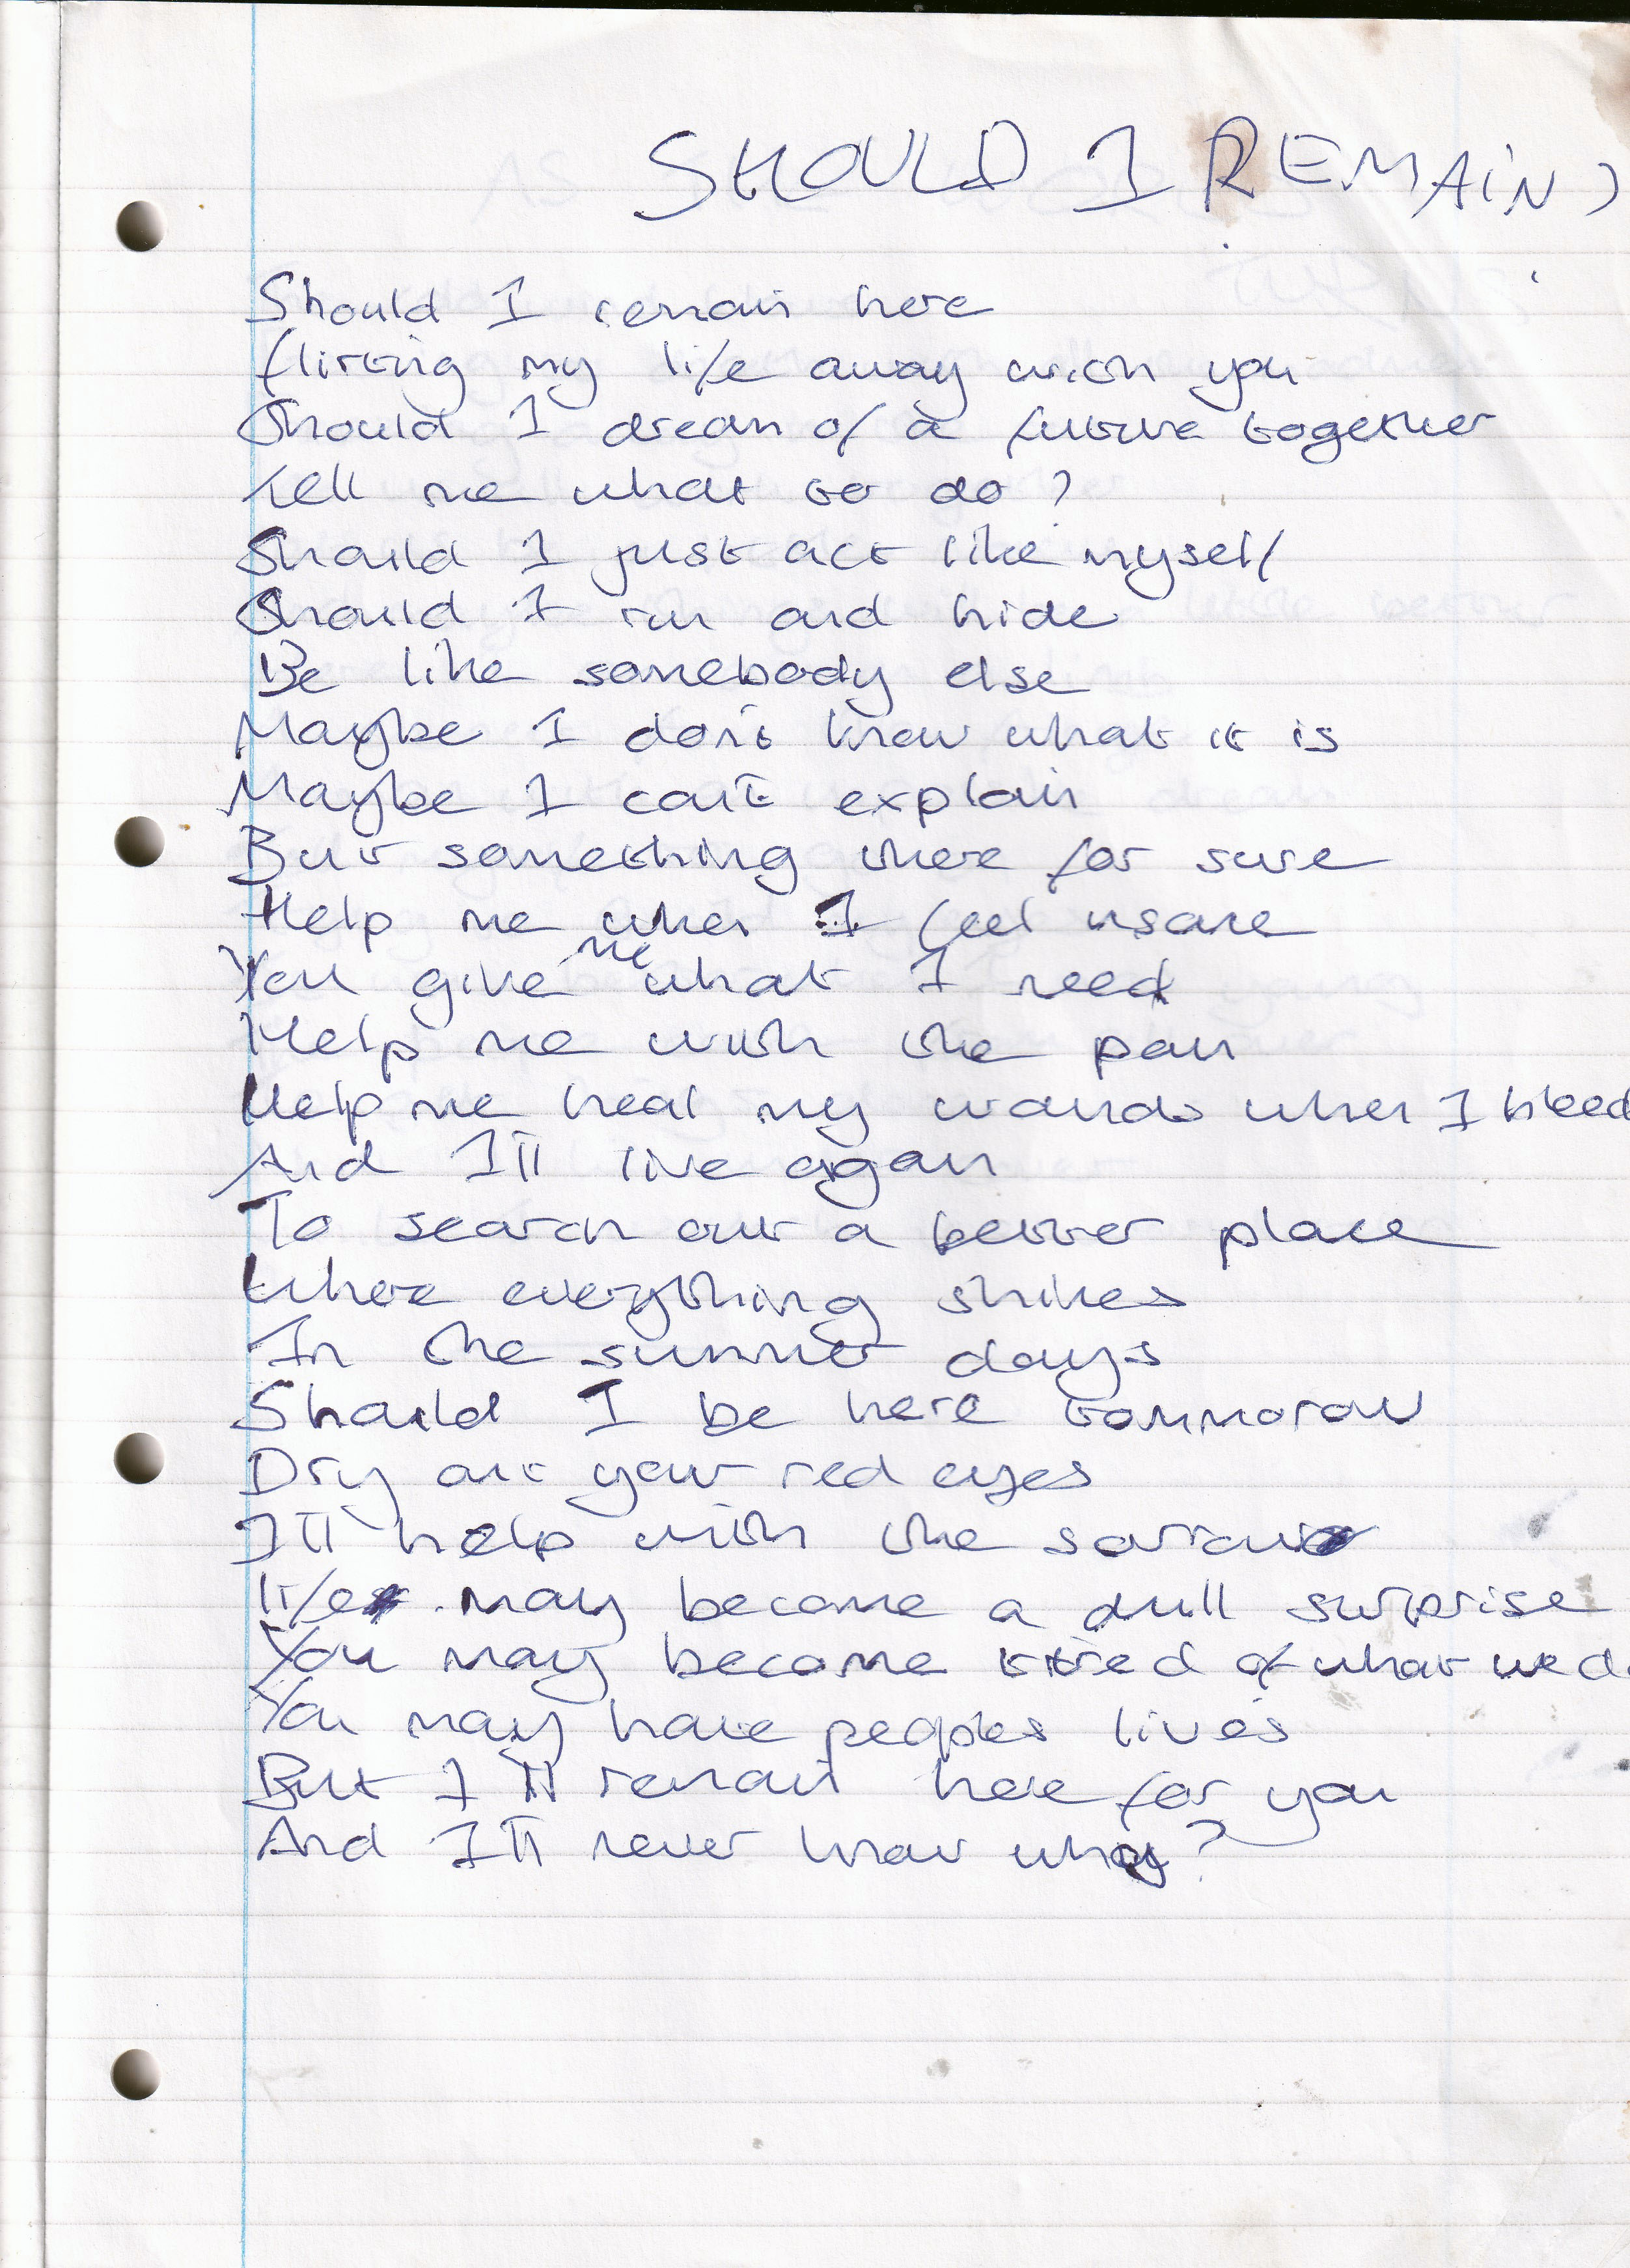 SHOULD I REMAIN?
Should I remain here
flirting my life away with you
Should I dream of a future together
Tell me what to do?
Should I just act like myself
Should I run and hide
Be like somebody else
Maybe I don't know what it is
Maybe I can't explain
But something there for sure
Help me when I feel insane
You give me what I need
Help me with the pain
Help me heal my wounds when I bleed
And I'll live again
To search out a better place
Where everything shines
In the summer days
Should I be here tommorow
Dry out your red eyes
I'll help with the
life may become a dull surprise
You may become tired of what we d
You may have peoples lives
But I'll remain here for you
And I'll never know why?